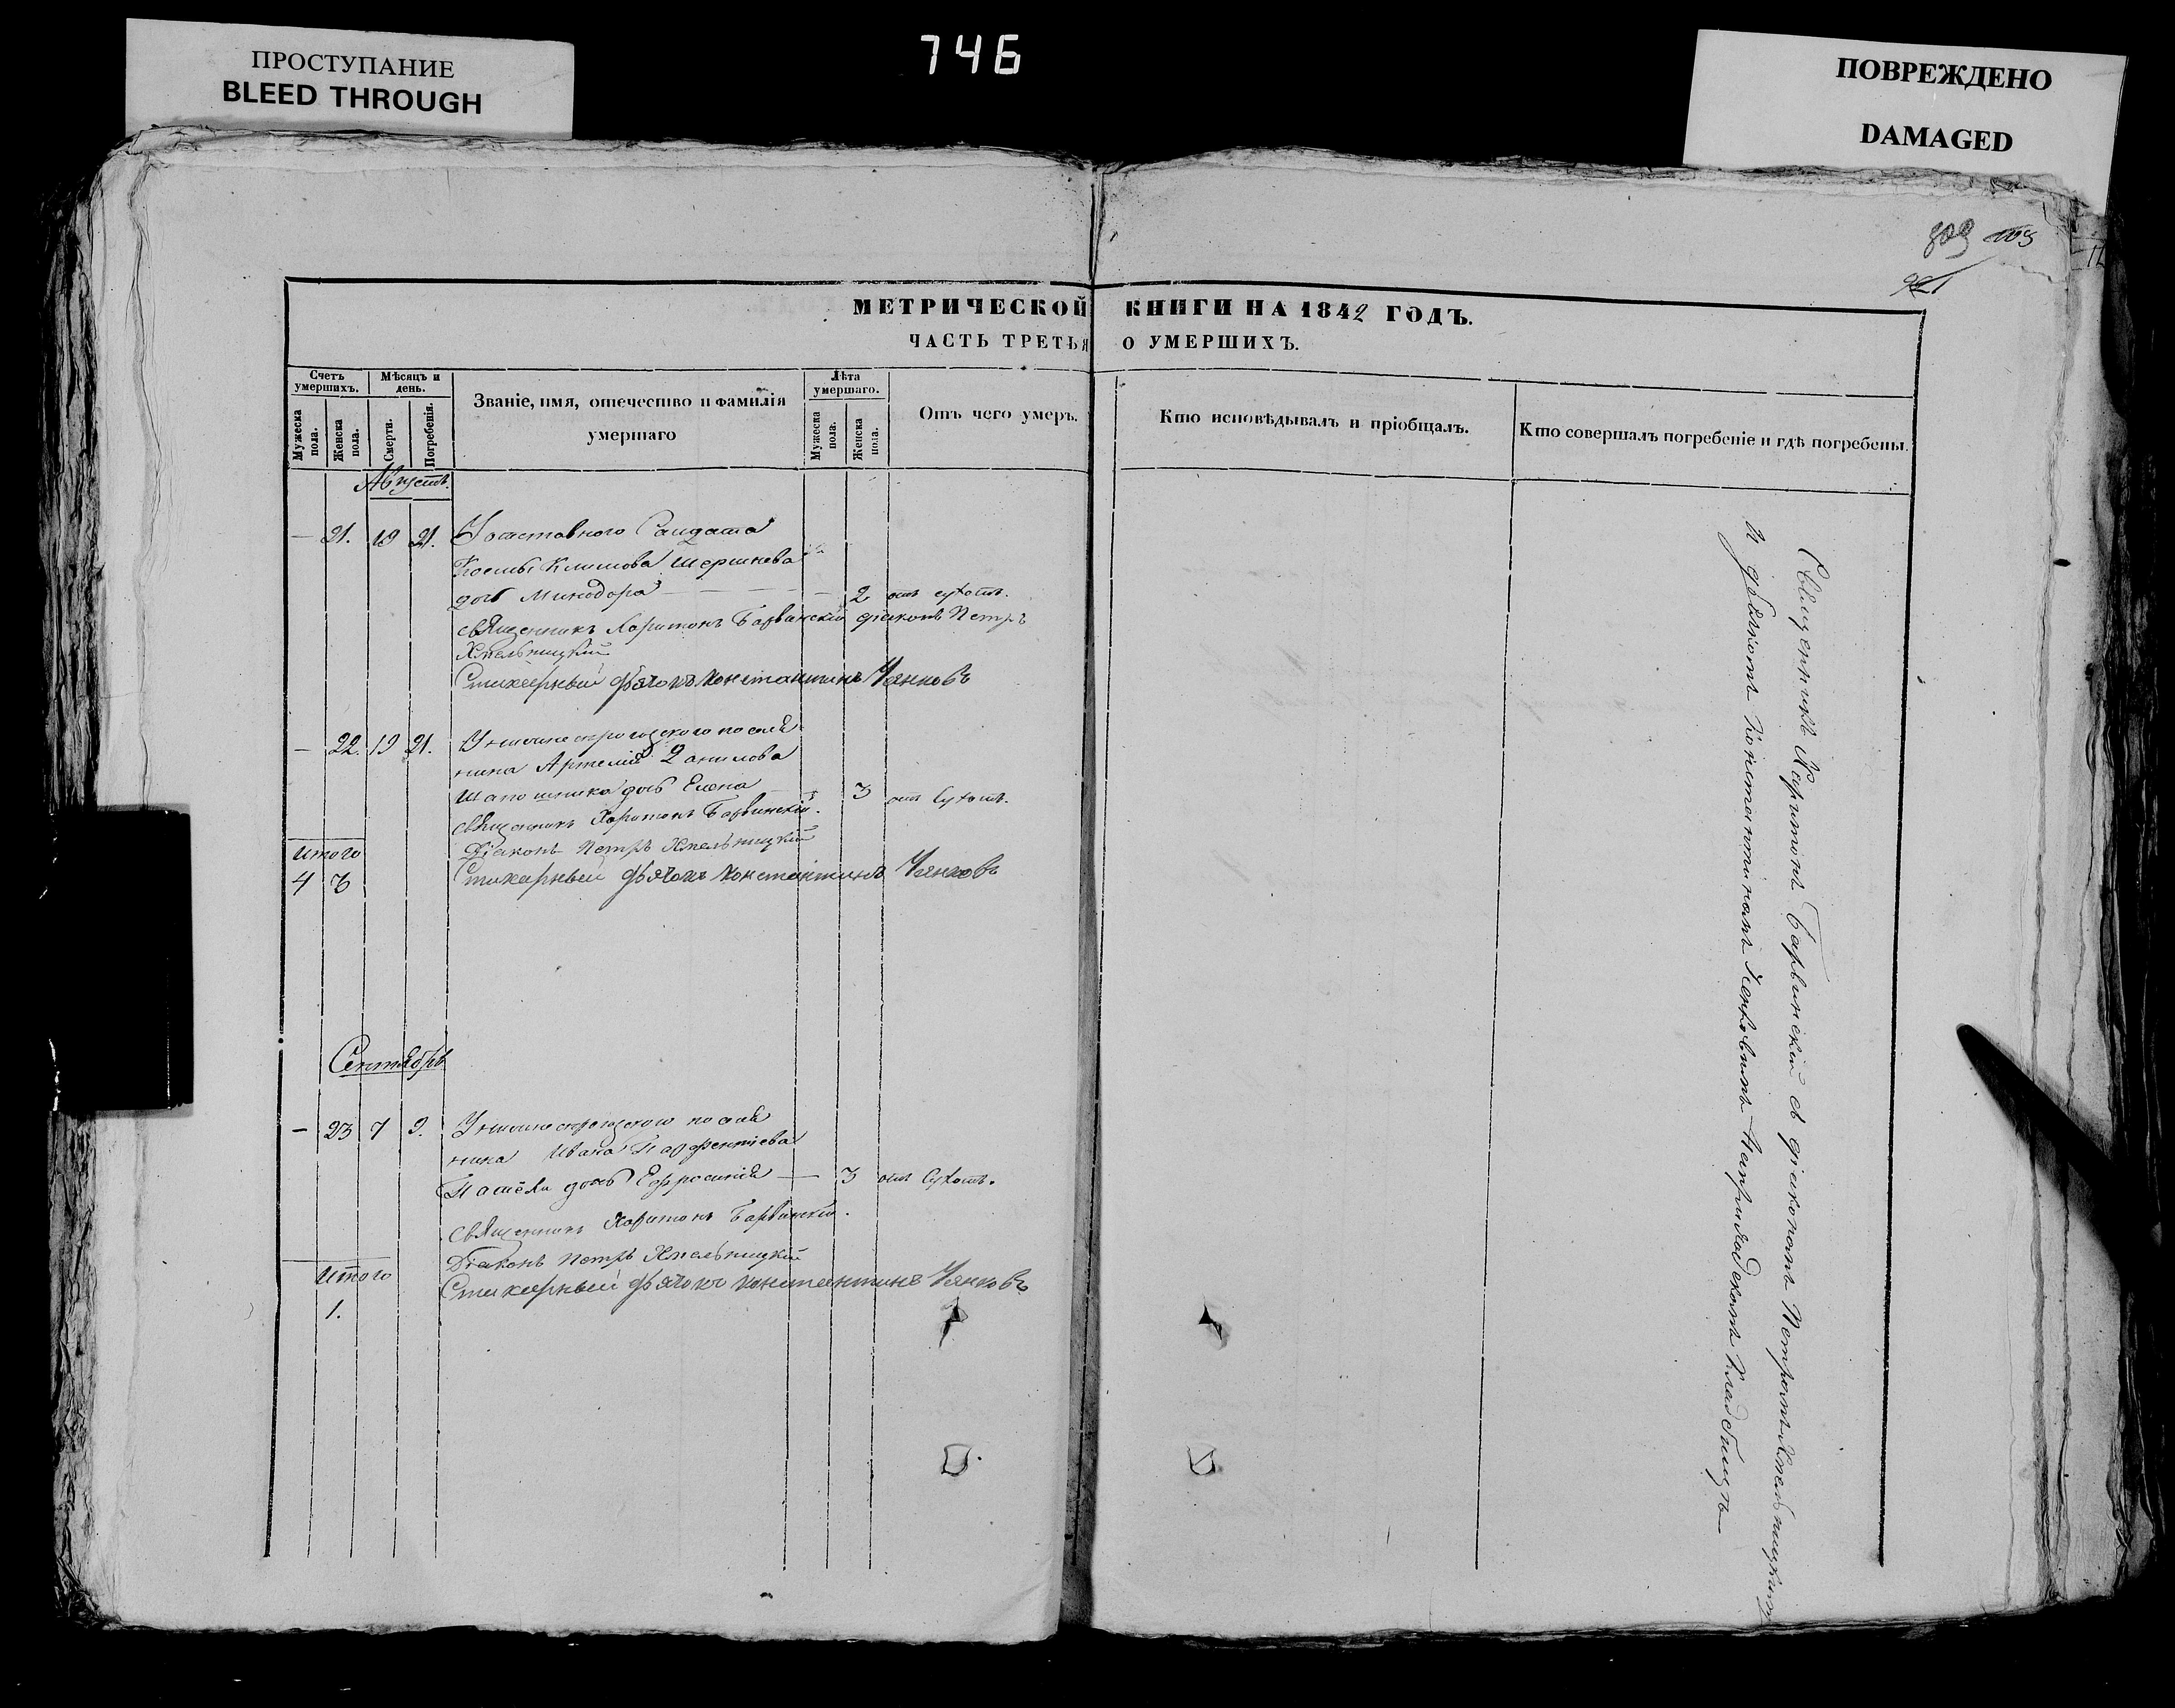 ПРОСТУПАНИЕ
BLEED THROUGH
746
ПОВРЕЖДЕНО
DAMAGED
809
МЕТРИЧЕСКОЙ КНИГИ НА 1842 ГОДЪ.
ЧАСТЬ ТРЕТЬЯ О УМЕРШИХЪ.
Счетъ умершихъ.
Мужеска пола.
Женска пола.
Мѣсяцъ и день.
Смерти.
Погребенія.
Званіе, имя, отечество и фамилія умершаго
Лѣта умершаго.
Мужеска пола.
Женска пола.
Отъ чего умеръ.
Кто исповѣдывалъ и пріобщалъ.
Кто совершалъ погребеніе и гдѣ погребены.
Августъ.
— 21. 19 21. Уотставного Салдата
Космы Климова Шершнева
дочь Минодора — 2 отъ сухотъ.
священникъ Харитонъ Барвинскій діаконъ Петръ
Хмельницкій
Стихарный дьячокъ Константинъ
— 22. 19 21. поселя
нина Артемія Данилова
Шапошника дочь Елена 3 отъ сухотъ.
священникъ Харитонъ Барвинскій.
Діаконъ Петръ Хмельницкій
итого
Стихарный дьячокъ Константинъ
4
Сентябрь
— 23 7 9. поселя
нина Ивана Парфентіева
дочь Ефросинія — 3 отъ сухотъ.
священникъ Харитонъ Барвинскій.
Діаконъ Петръ Хмельницкій
итого
Стихарный дьячокъ Константинъ
1.
Священникъ Харитонъ Барвинскій съ діакономъ Петромъ Хмельницкимъ
и дьячкомъ Константиномъ На приходскомъ кладбищѣ